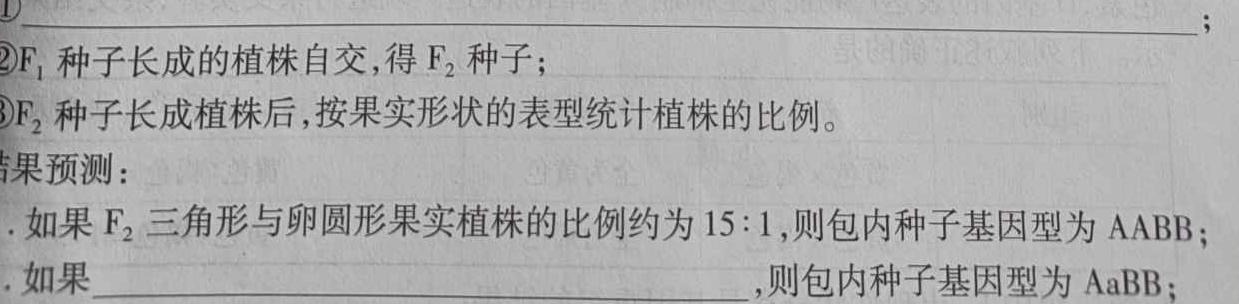 ①______;
②F₁ 种子长成的植株自交,得 F₂ 种子;
③F₂ 种子长成植株后,按果实形状的表型统计植株的比例。
结果预测:
. 如果 F₂ 三角形与卵圆形果实植株的比例约为 15∶1,则包内种子基因型为 AABB;
. 如果______,则包内种子基因型为 AaBB;